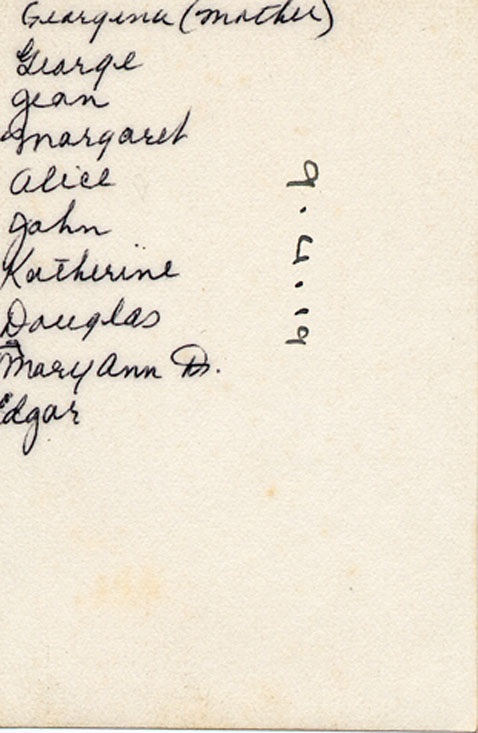 Georgina (mother)
George
Jean
Margaret
Alice
John
Katherine
Douglas
Mary Ann D.
Edgar